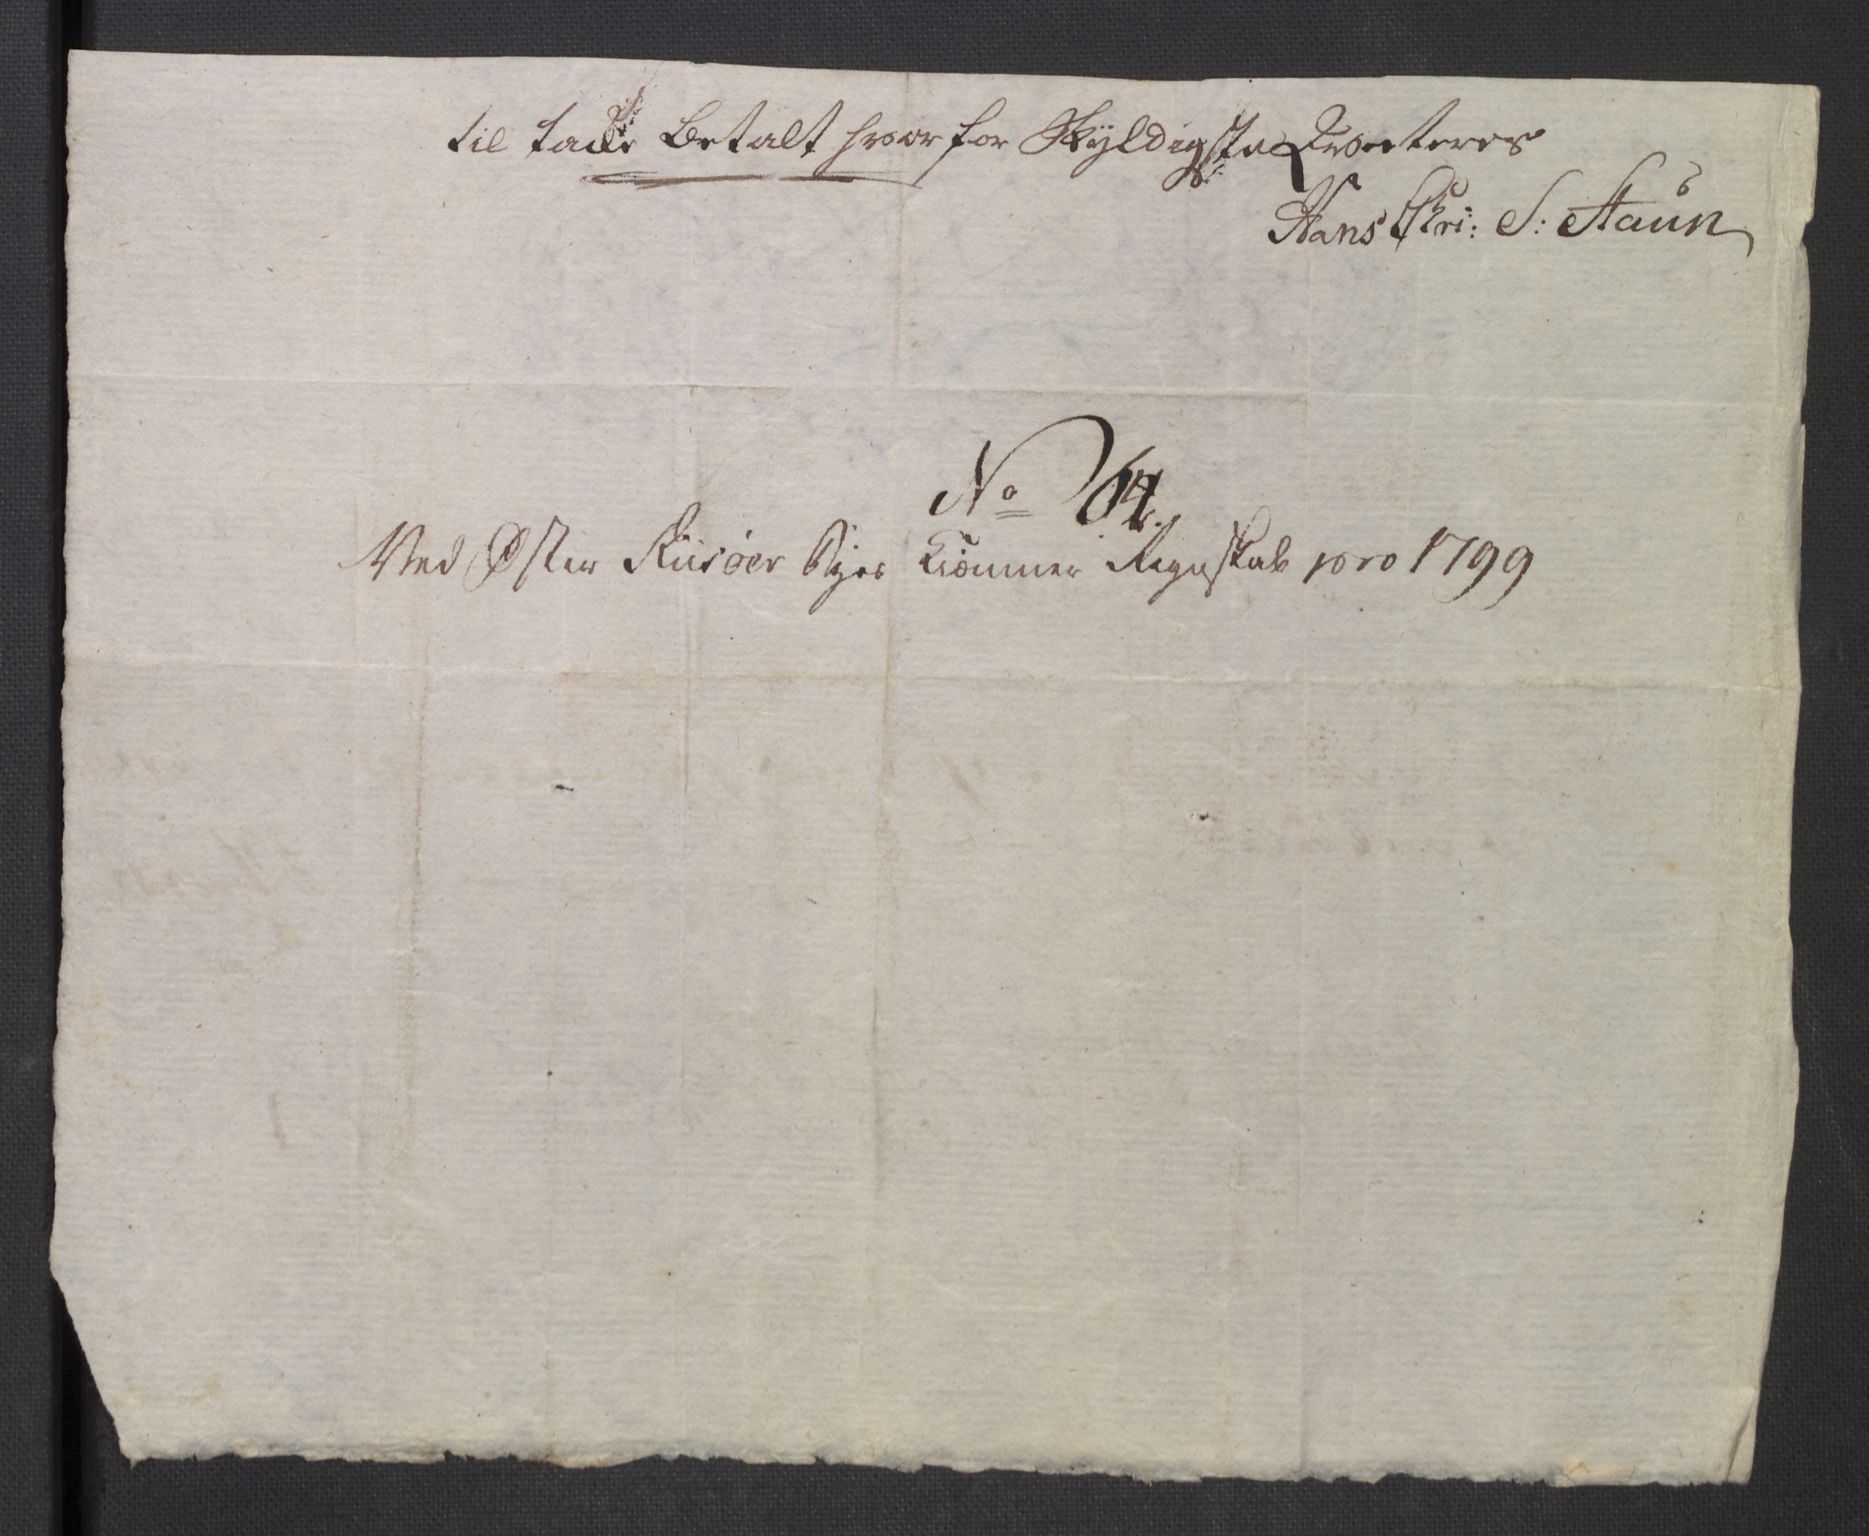 til takke Betalt hvorfor Skyldigst Qvitteres
Hans Chri: S: Staun
No 64.
Ved Øster Riisöer Byes Kiæmner Regnskab pro 1799